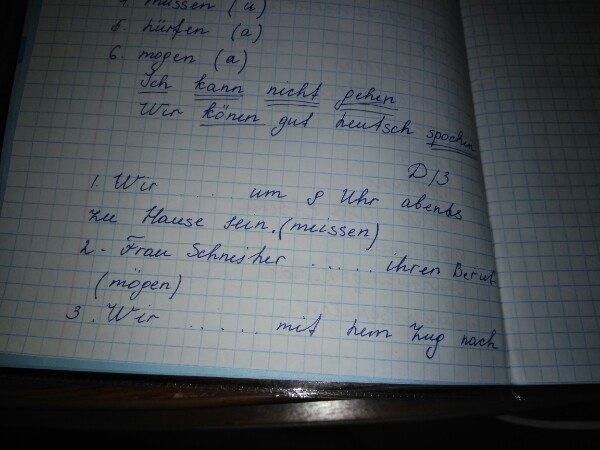 4. müssen (u)
5. dürfen (a)
6. mogen (a)
Ich kann nicht gehen
Wir könen gut deutsch spochen
D/З
1. Wir ... um 8 Uhr abends
zu Hause sein. (müissen)
2 - Frau Schneiher ..... ihren Beruf
(mögen)
3. Wir ..... mit dem Zug nach